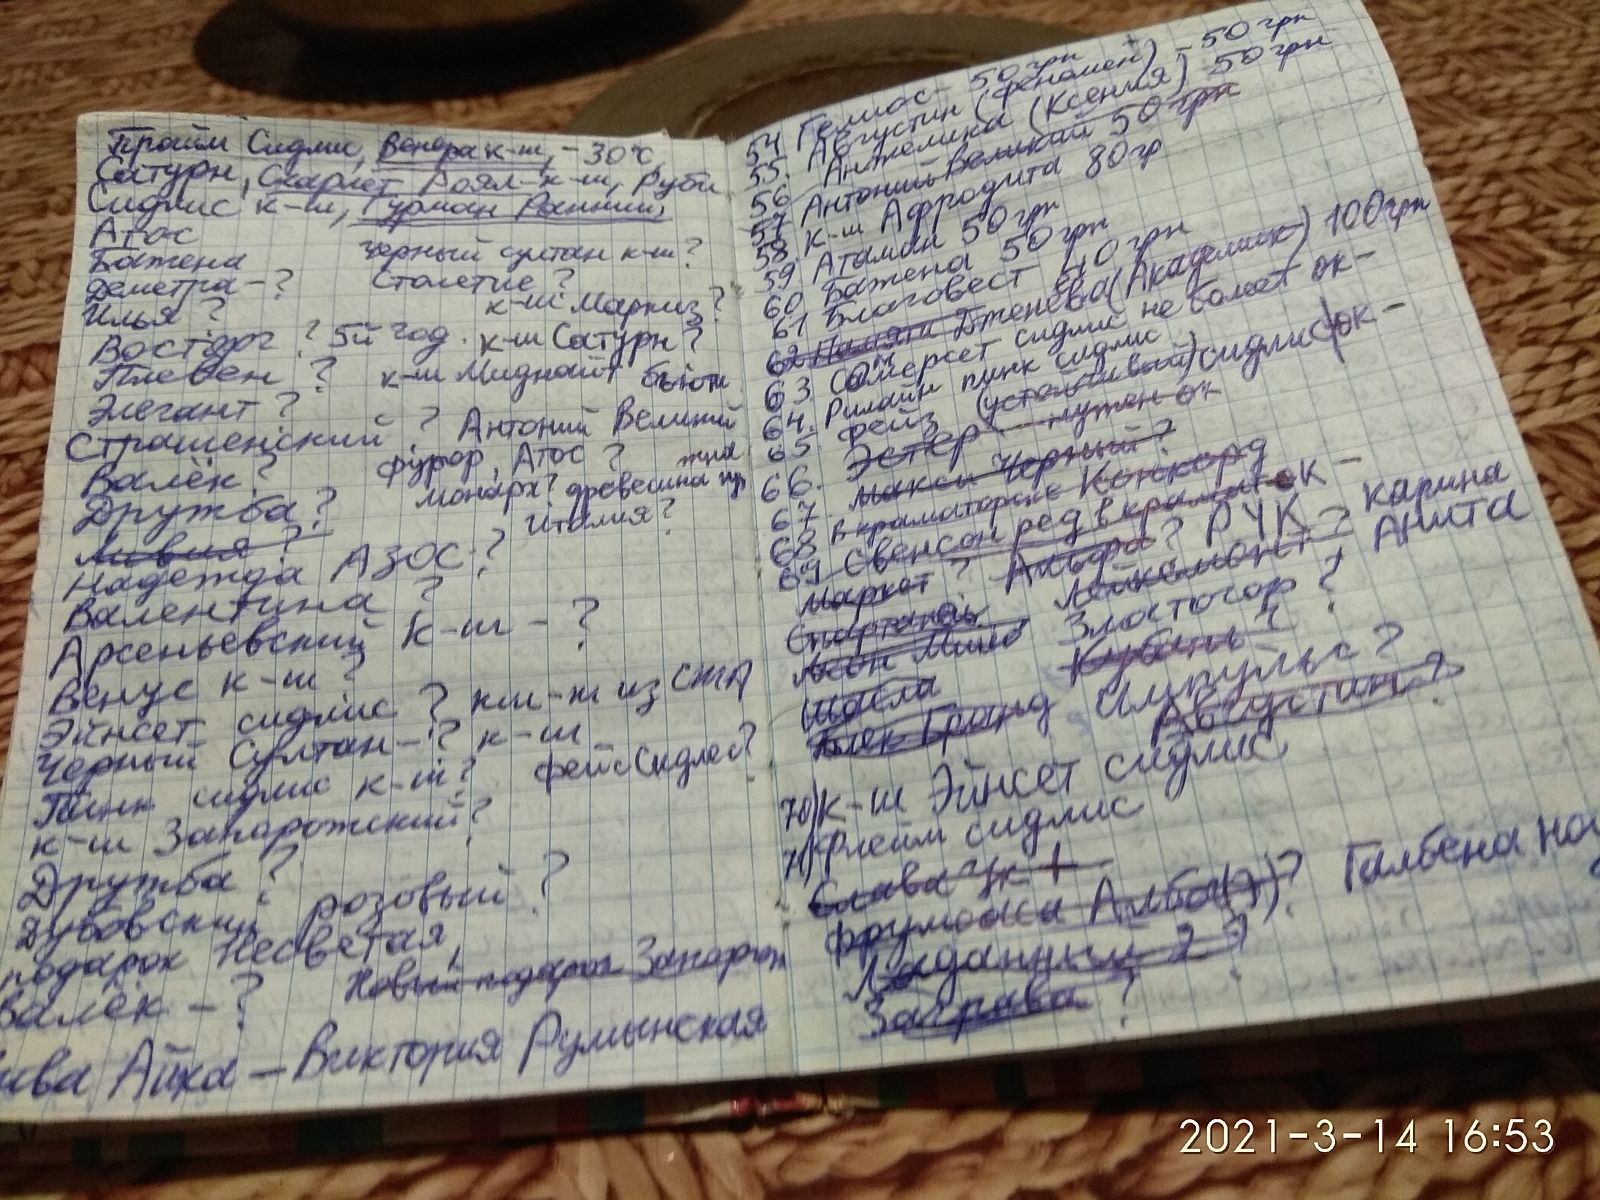 Прайм Сидлис, Венера к-ш, -30°C,
Сатурн, Скарлет Роял-к-ш, Руби
Сидлис к-ш, Гурман Ранний,
Атос
Бажена черный султан к-ш?
Деметра-? Столетие?
Илья? к-ш Маркиз?
Восторг? 5й год. к-ш Сатурн?
Плевен? к-ш Миднайт бьюти
Элегант?
Страшенский? Антоний Великий
Валёк? фурор, Атос?
Дружба? монарх? древесина
Ливия? Италия?
Надежда АЗОС?
Валентина?
Арсеньевский к-ш-?
Венус к-ш?
Эйнсет сидлис? из США
Черный Султан-? к-ш
Пинк сидлис к-ш? фейс Сидлес?
к-ш Запарожский?
Дружба?
Дубовский розовый?
подарок Несветая,
Валёк-? Новый подарок Запарож
Айка-Виктория Румынская
54. Гелиос- 50грн
55. Августин (феномен) -50грн
56 Анжелика (Ксения) 50грн
57 Антоний Великий 50грн
58. к-ш Афродита 80гр
59 Атаман 50грн
60 Бажена 50грн
61 Благовест 50грн
62 Памяти Дженеева (Академик) 100грн
63 Самерсет сидлис не болеет ок-
64. Рилайн пинк сидлис
65 фейз (устойчивый) сидлис ок-
66. Эстер нужен ок
67 макси Черный?
68 в краматорске Конкорд
69 Свенсон ред в крамат ок-
Маркет? Альфа? РУК? карина
Спартанец Анита
Леон Мило Златогор?
шасла Кубань?
Блек Гранд Импульс?
Августин?
70) к-ш Эйнсет сидлис
71) Флейм сидлис
Слава Ук +
Фрумоаса Албэ(?)? Галбена ноу
Ладанный 2?
Заграва?
2021-3-14 16:53